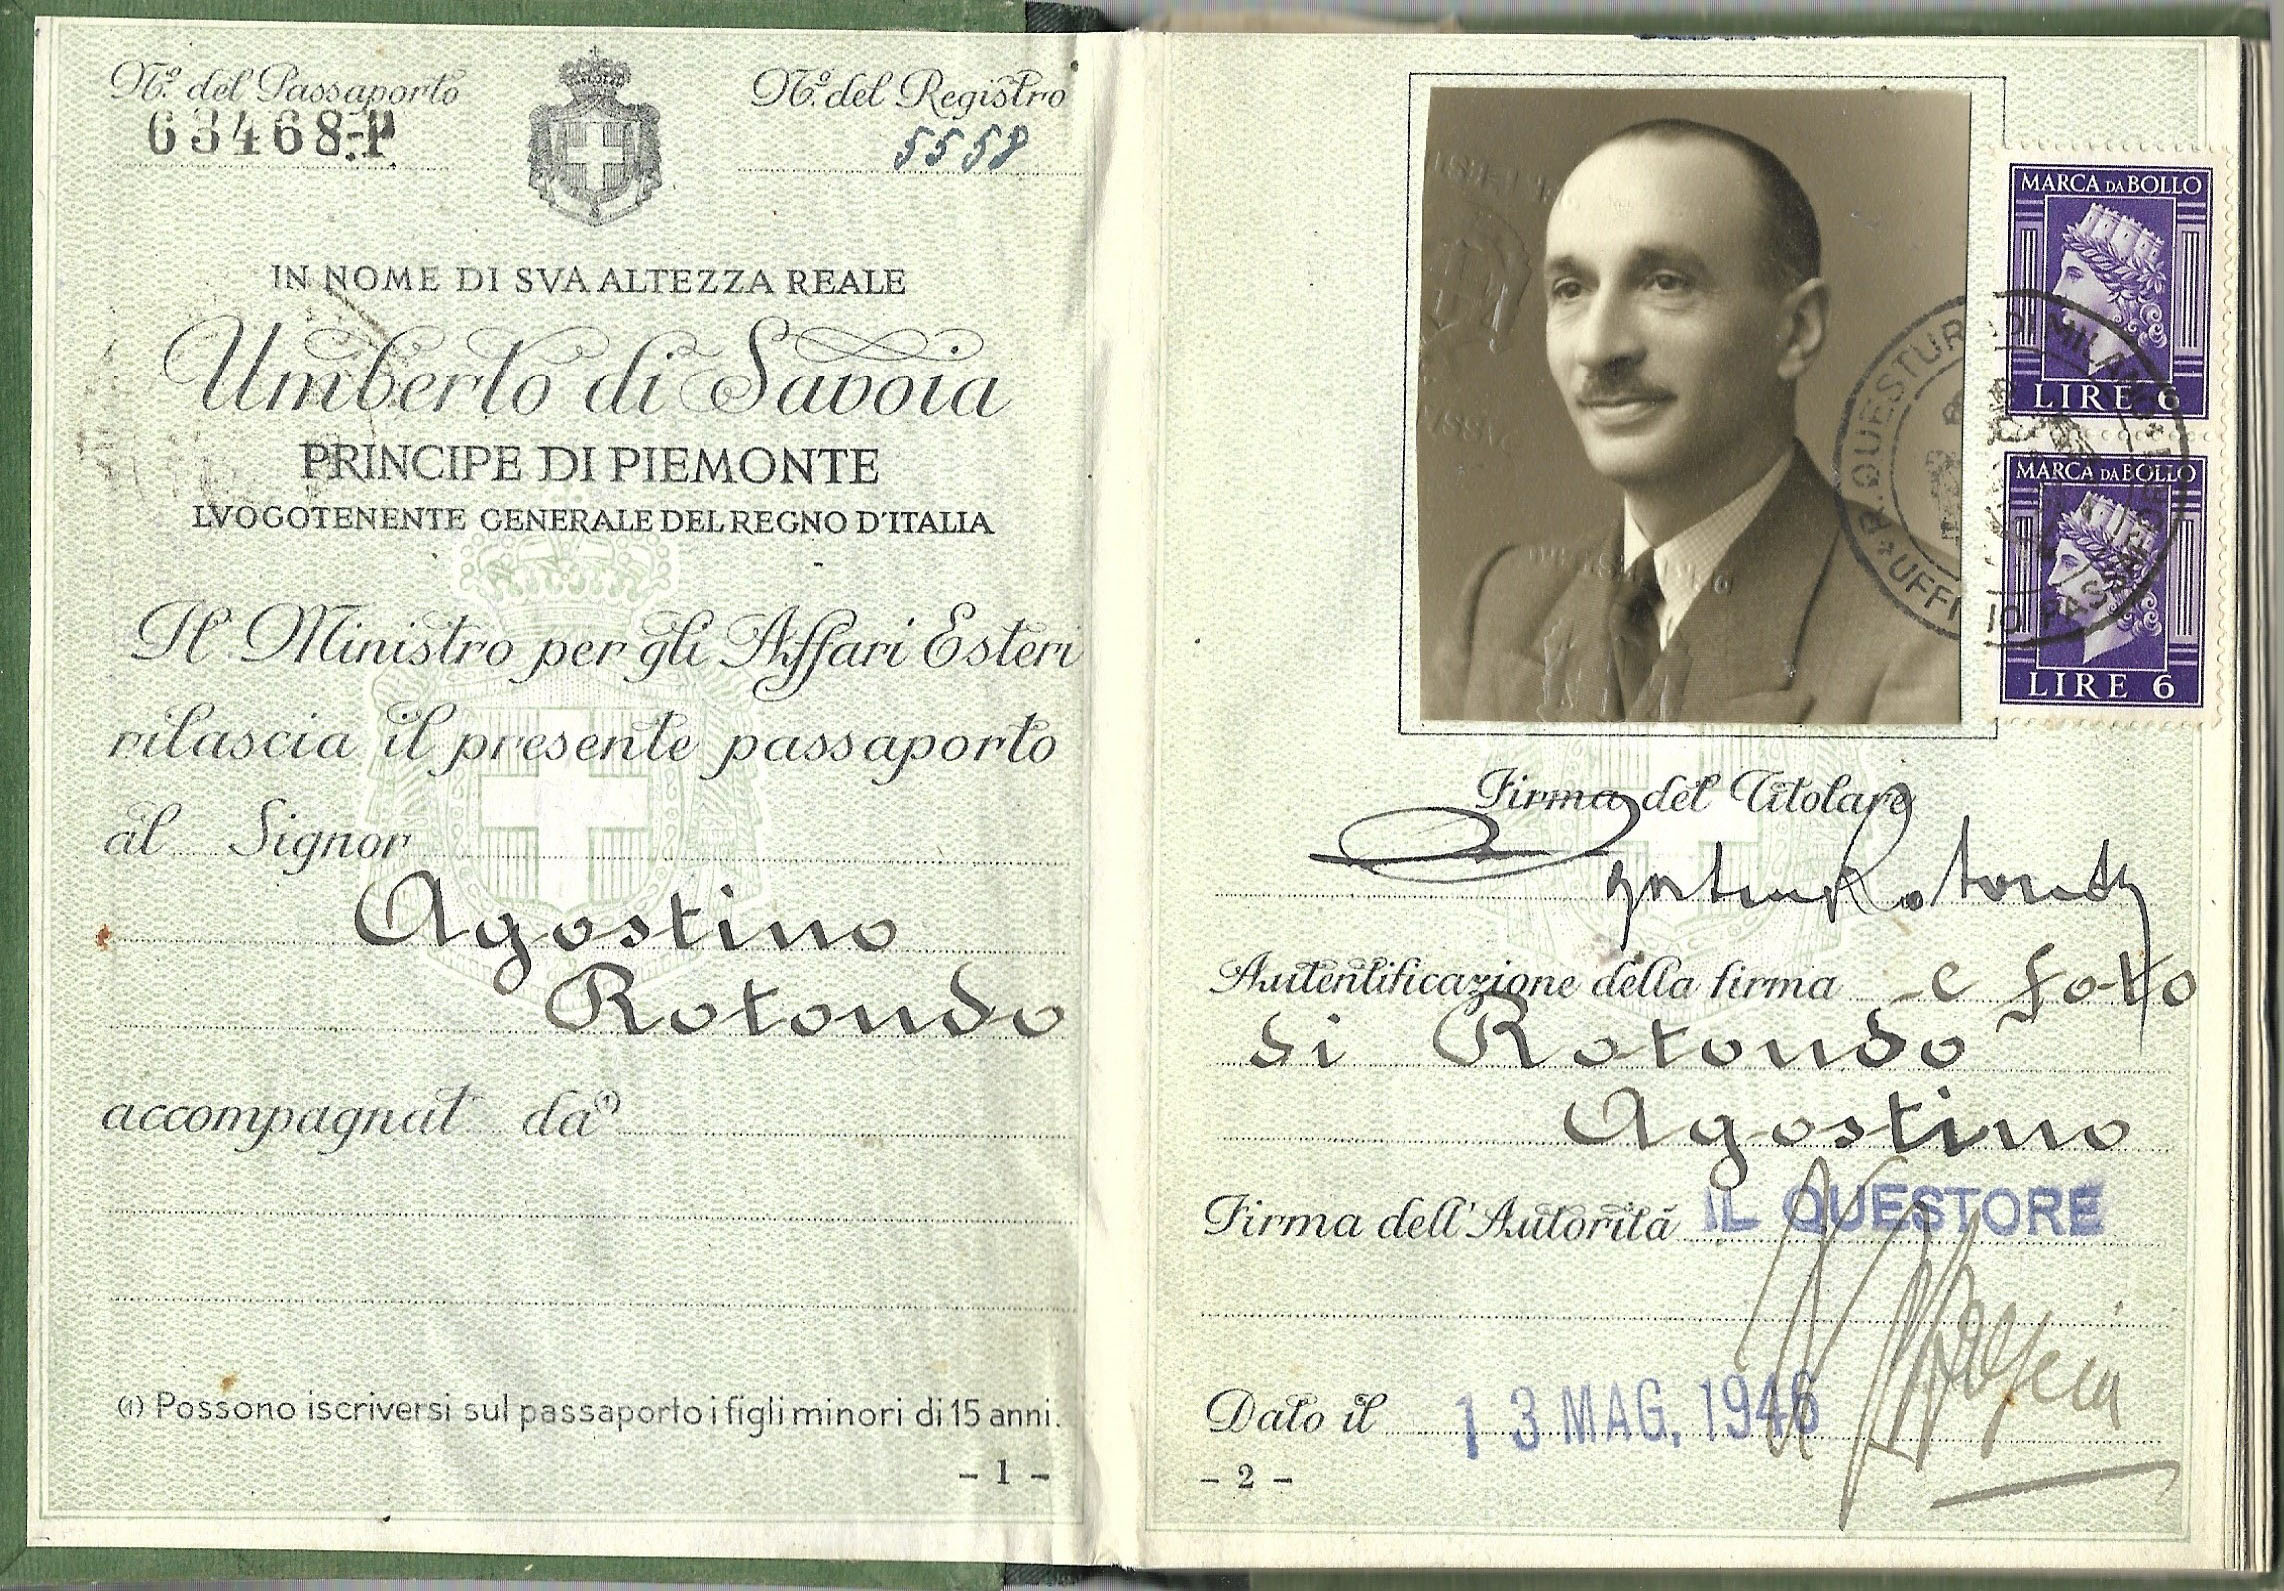 Nº. del Passaporto
63468-P.
Nº. del Registro
5558
IN NOME DI SVA ALTEZZA REALE
Umberto di Savoia
PRINCIPE DI PIEMONTE
LVOGOTENENTE GENERALE DEL REGNO D'ITALIA
Il Ministro per gli Affari Esteri
rilascia il presente passaporto
al Signor
Agostino
Rotondo
accompagnat da (1)
(1) Possono iscriversi sul passaporto i figli minori di 15 anni.
- 1 -
MARCA DA BOLLO
LIRE 6
MARCA DA BOLLO
LIRE 6
R. QUESTURA DI MILANO
UFFICIO PASSAPORTI
Firma del Titolare
Agostino Rotondo
Autentificazione della firma e foto
di Rotondo
Agostino
Firma dell'Autorità IL QUESTORE
Dato il 13 MAG. 1946
- 2 -